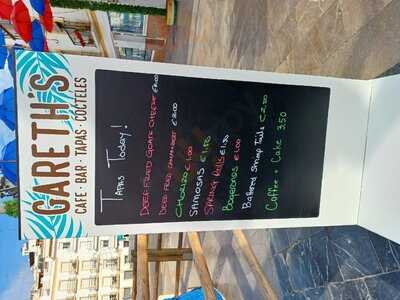 GARETH'S
CAFE · BAR · TAPAS · COCTELES
Tapas Today!
DEEP FRIED GOATS CHEESE
DEEP FRIED CAMEMBERT €2.00
CHORIZO €1.00
SAMOSAS €1.50
SPRING Rolls €1.50
Boquerones €1.00
Battered Shrimp Tails €2.50
Coffee + Cake 3.50